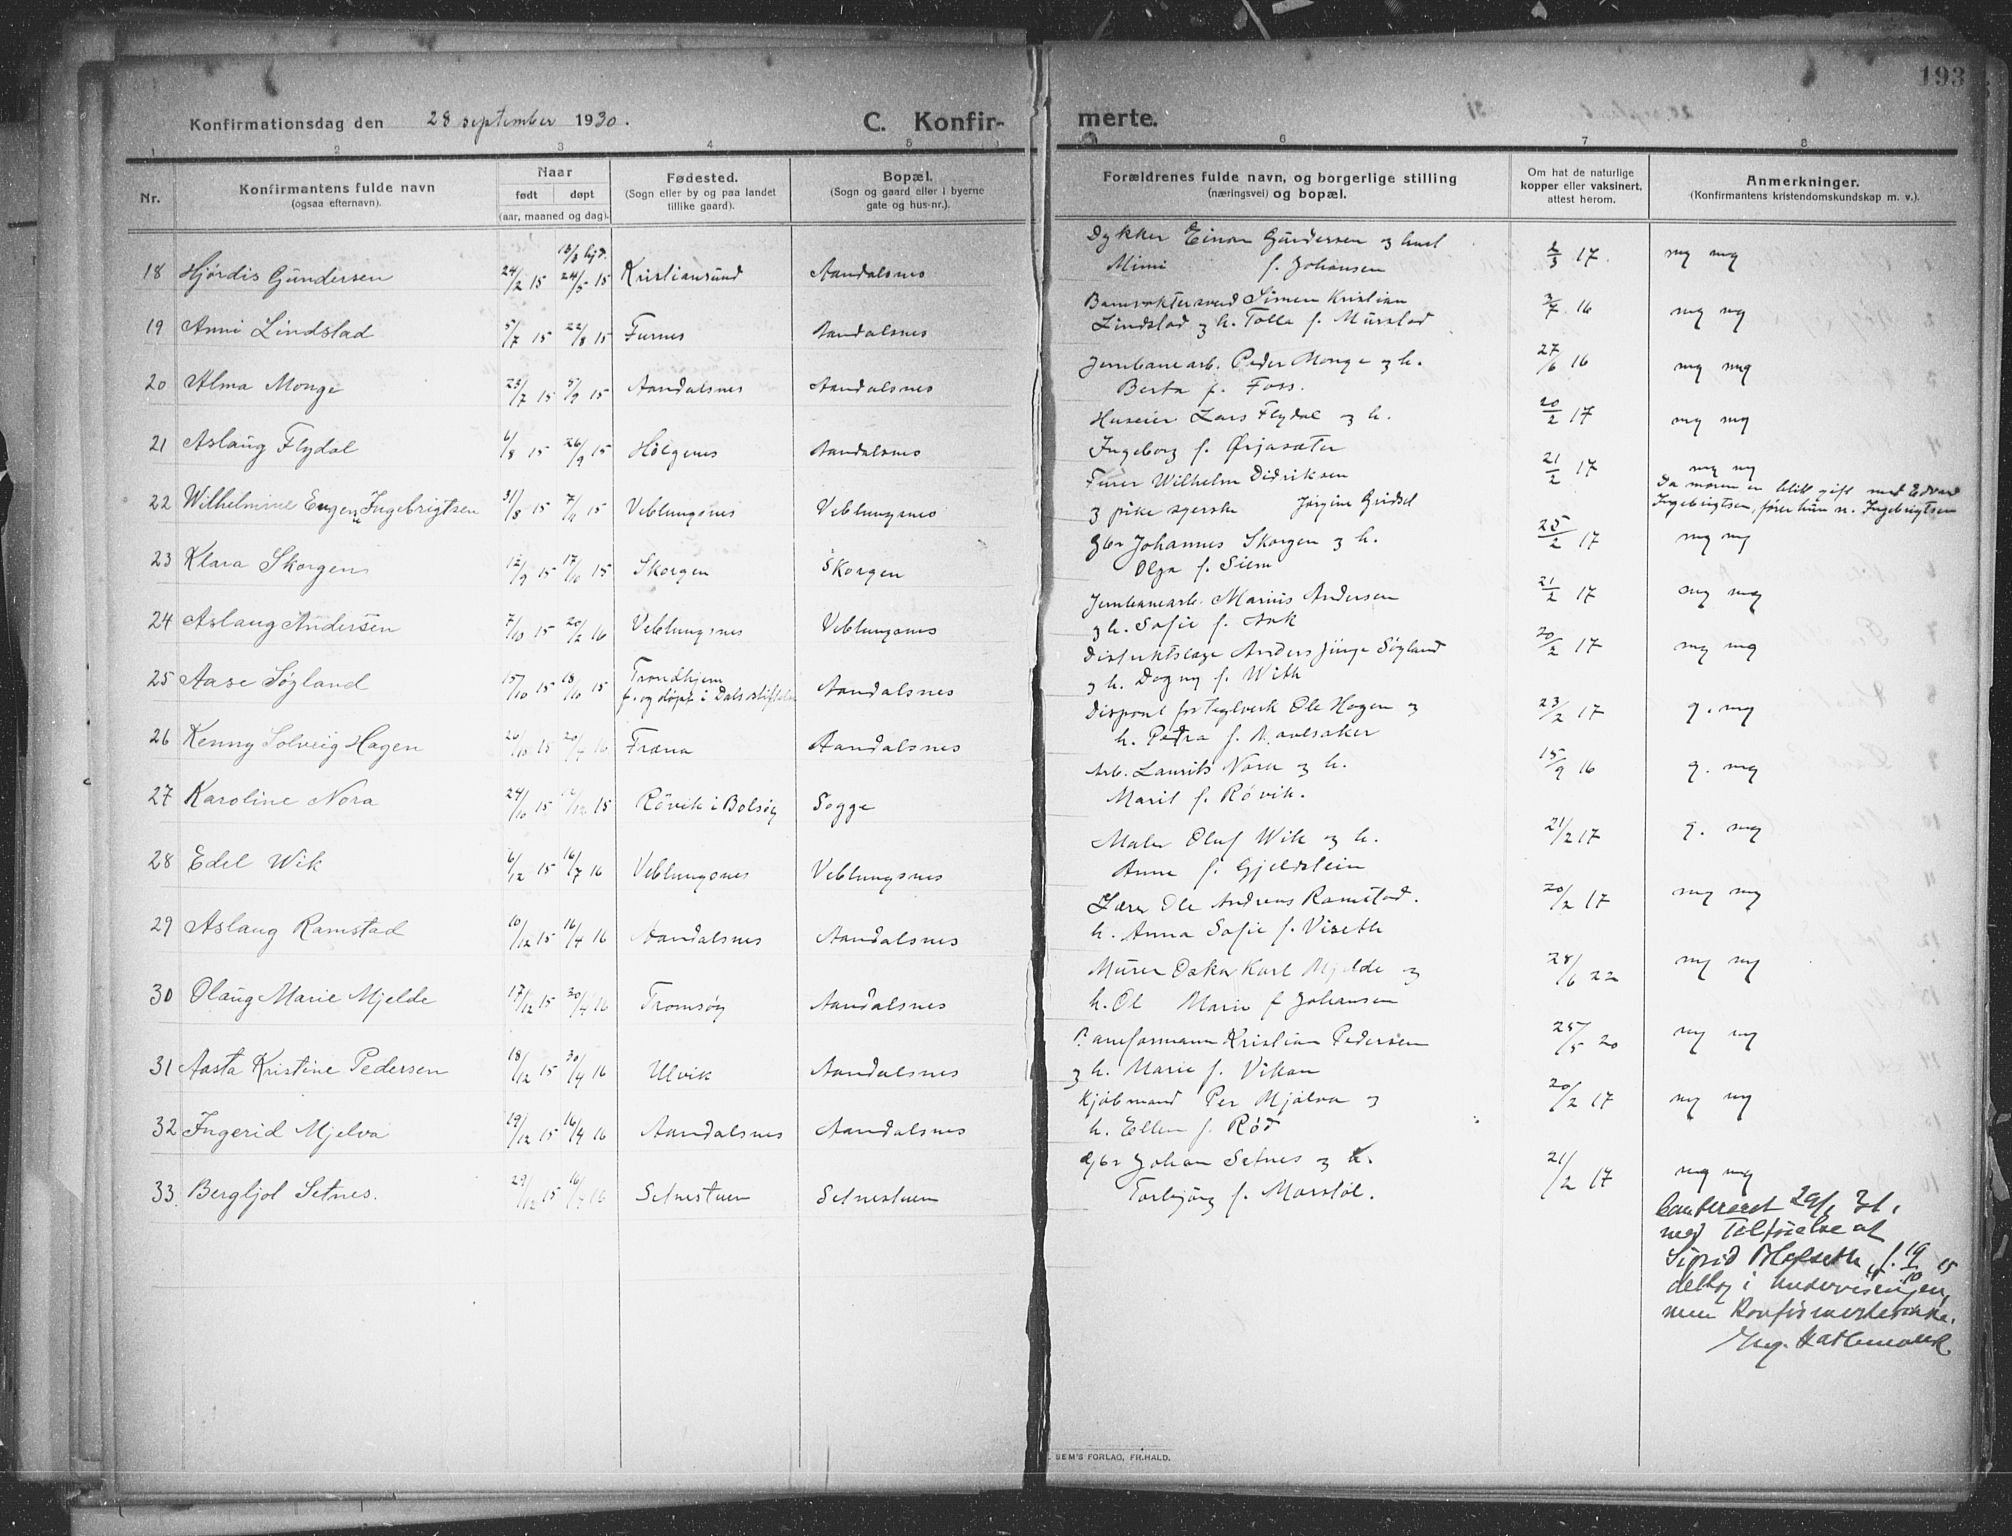 193
Konfirmationsdag den 28 september 1930. C. Konfirmerte.
1 2 3 4 5 6 7 8
Nr.
Konfirmantens fulde navn
(ogsaa efternavn).
Naar
født døpt
(aar, maaned og dag).
Fødested.
(Sogn eller by og paa landet
tillike gaard).
Bopæl.
(Sogn og gaard eller i byerne
gate og hus-nr.).
Forældrenes fulde navn, og borgerlige stilling
(næringsvei) og bopæl.
Om hat de naturlige
kopper eller vaksinert,
attest herom.
Anmerkninger.
(Konfirmantens kristendomskundskap m. v.).
13/3 hjd.
18 Hjørdis Gundersen 24/2 15 24/5 15 Kristiansund Aandalsnes
Dykker Einar Gundersen og hust
Mimi f. Johansen 17. mg mg
19 Anni Lindstad 5/7 15 22/8 15 Furnes Aandalsnes
Simen Kristian
Lindstad og h. f. Murstad 16 mg mg
20 Alma Monge 23/7 15 5/9 15 Aandalsnes Aandalsnes
Jernbanearb. Peder Monge og h.
Berta f. Foss. 27/6 16 mg mg
21 Aslaug Flydal 6/8 15 26/9 15 Holgenes Aandalsnes
Huseier Lars Flydal og h.
Ingeborg f. Ørjasæter 20/2 17 mg mg
22 Wilhelmine Eugenie Ingebrigtsen 31/8 15 15 Veblungsnes Veblungsnes
Furer Wilhelm Didriksen
og pike syerske Jørgine Gridset 21/2 17 mg mg
Da moren er blitt gift med Edvard
Ingebrigtsen, fører hun n. Ingebrigtsen
23 Klara Skorgen 12/9 15 17/10 15 Skorgen Skorgen
Gbr Johannes Skorgen og h.
Olga f. Siem 25/2 17 mg mg
24 Aslaug Andersen 7/10 15 20/2 16 Veblungsnes Veblungsnes
Jernbanearb. Marius Andersen
og h. Sofie f. Aak 21/2 17 mg mg
25 Aase Søgland 15/10 15 18/10 15 Trondhjem
f. og døpt i Aandalsnes
Distriktslæge Anders Søgland
og h. Dagny f. With 20/2 17 mg mg
26 Kenny Solveig Hagen 26/10 15 20/4 16 Fræna Aandalsnes
Dispont. for Teglverk Ole Hagen og
h. Petra f. 23/2 17 g. mg
27 Karoline Nora 24/10 15 12/12 15 Røvik i Bolsøy Sogge
Arb. Laurits Nora og h.
Marit f. Røvik. 15/9 16 g. mg
28 Edel Wik 6/12 15 16/7 16 Veblungsnes Veblungsnes
Maler Oluf Wik og h.
Anna f. Gjeldstein 21/2 17 g. mg
29 Aslaug Ramstad 10/12 15 16/4 16 Aandalsnes Aandalsnes
Lærer Ole Andreas Ramstad.
h. Anna Sofie f. Viseth 20/2 17 mg mg
30 Olaug Marie Mjelde 17/12 15 30/4 16 Tromsøy Aandalsnes
Murer Oskar Karl Mjelde og
h. Ol Marie f Johansen 28/6 22 mg mg
31 Aasta Kristine Pedersen 18/12 15 30/4 16 Ulvik Aandalsnes
Baneformann Kristian Pedersen
og h. Marie f. Vikan 25/5 20 mg mg
32 Ingerid Mjelva 19/12 15 16/4 16 Aandalsnes Aandalsnes
Kjøbmand Per Mjølva og
h. Ellen f. Rød 20/2 17 mg mg
33. Bergljot Setnes. 29/12 15 16 Setnestuen Setnestuen
Gbr Johan Setnes og h.
Torbjørg f. Marstøl. 21/2 17 mg mg
29/1 31.
med Tilføielse at
Sigrid f. 19/10 15
deltog i Undervisningen,
men Konfirmertes ikke.